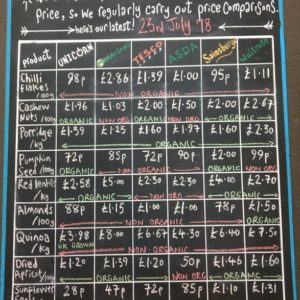 price, so we regularly carry out price comparisons.
here's our latest! 23rd July '18
product UNICORN TESCO ASDA Sainsbury's Waitrose
Chilli 98p £2.86 £1.39 £1.00 95p £1.11
flakes /100g NON ORGANIC
Cashew £1.96 £1.03 £2.00 £1.50 £2.00 £2.67
Nuts /100g ORGANIC NON ORG ORGANIC NON ORG. ORGANIC
Porridge £1.39 £1.25 £1.60 £1.97 £1.60 £2.30
/kg ORGANIC
Pumpkin 72p 85p 72p 90p £2.00 99p
Seed /100g ORGANIC NON ORGANIC ORGANIC NON ORG.
Red lentils £2.58 £5.00 £2.30
/kg ORGANIC NON ORGANIC ORGANIC
Almonds 88p £1.15 £1.00 £1.00 78p £1.50
/100g NON ORGANIC
Quinoa £3.98 £6.00 £4.30 £6.40 £7.50
/kg UK GROWN NON ORGANIC
Dried £1.20 £1.39 £1.20 50p £1.46 £1.60
Apricot /100g ORGANIC NON ORG ORGANIC
Sunflower 28p 47p 72p 85p £1.13 51p